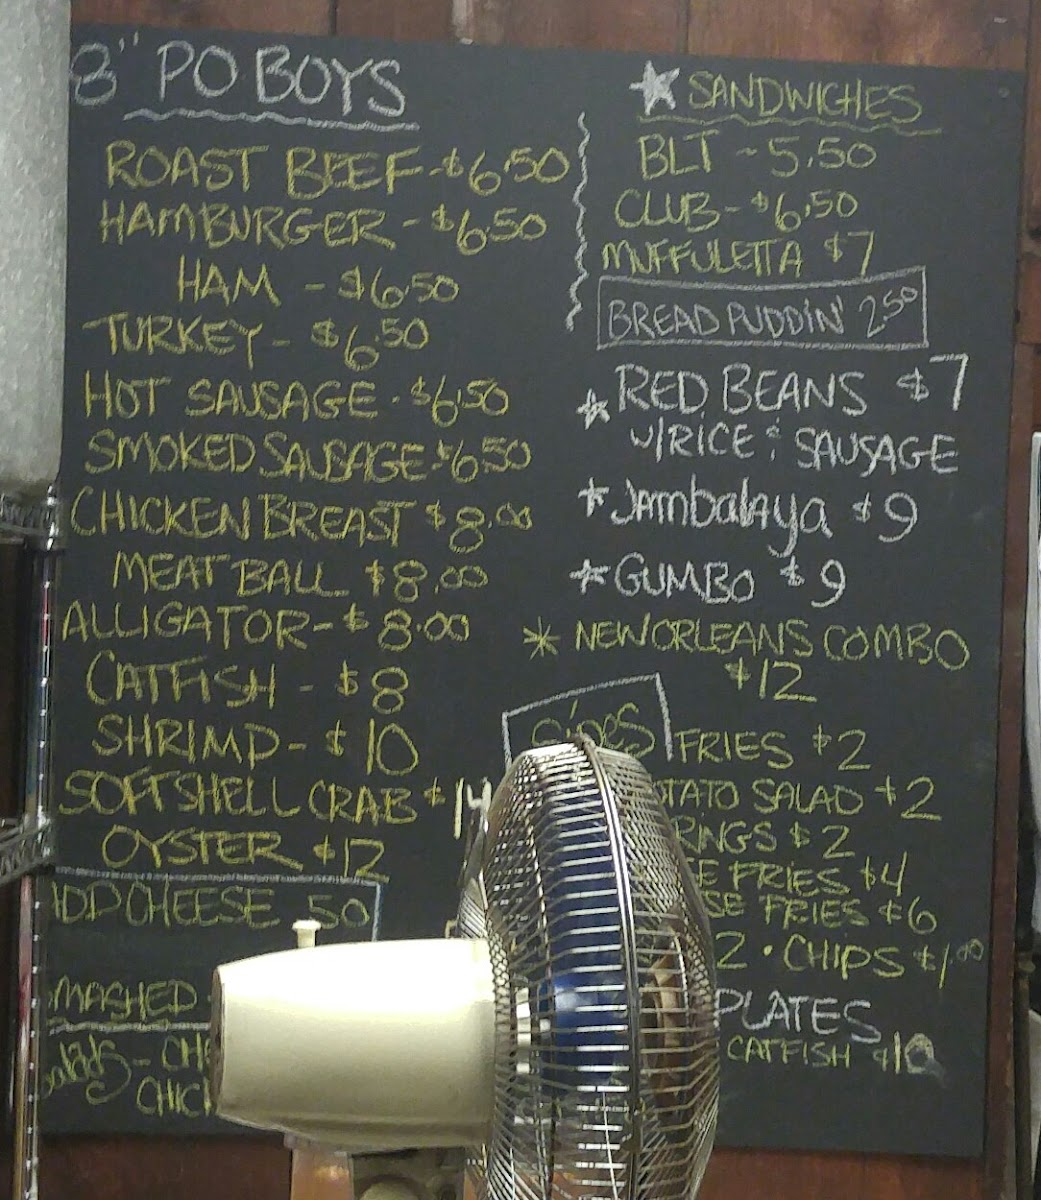 8" PO BOYS
ROAST BEEF - $6.50
HAMBURGER - $6.50
HAM - $6.50
TURKEY - $6.50
HOT SAUSAGE - $6.50
SMOKED SAUSAGE $6.50
CHICKEN BREAST $8.00
MEAT BALL $8.00
ALLIGATOR - $8.00
CATFISH - $8
SHRIMP - $10
SOFTSHELL CRAB $14
OYSTER $12
ADD CHEESE 50
SMASHED
Salads - CH
CHIC
SANDWICHES
BLT - 5.50
CLUB - $6.50
MUFFULETTA $7
BREAD PUDDIN' 2.50
RED BEANS $7
W/RICE & SAUSAGE
Jambalaya $9
GUMBO $9
NEW ORLEANS COMBO
$12
SIDES
FRIES $2
OTATO SALAD $2
RINGS $2
E FRIES $4
SE FRIES $6
2 • CHIPS $1.00
PLATES
CATFISH $10